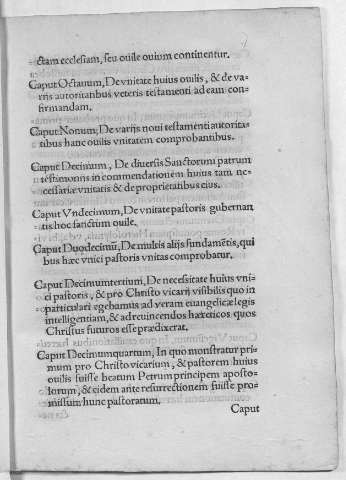 ctam ecclesiam, seu ouile ouium continentur.
Caput Octauum, De vnitate huius ouilis, & de va-
rijs autoritatibus veteris testamenti ad eam con-
firmandam.
Caput Nonum, De varijs noui testamenti autorita-
tibus hanc ouilis vnitatem comprobantibus.
Caput Decimum, De diuersis Sanctorum patrum
testimonijs in commendationem huius tam ne-
cessariæ vnitatis & de proprietatibus eius.
Caput Vndecimum, De vnitate pastoris gubernan
tis hoc sanctum ouile.
Caput Duodecimū, De multis alijs fundamētis, qui
bus hæc vnici pastoris vnitas comprobatur.
Caput Decimumtertium, De necessitate huius vni-
ci pastoris, & pro Christo vicarij visibilis quo in
particulari egebamus ad veram euangelicæ legis
intelligentiam, & ad reuincendos hæreticos quos
Christus futuros esse prædixerat.
Caput Decimumquartum, In quo monstratur pri-
mum pro Christo vicarium, & pastorem huius
ouilis fuisse beatum Petrum principem aposto-
lorum, & eidem ante resurrectionem fuisse pro-
missum hunc pastoratum.
Caput